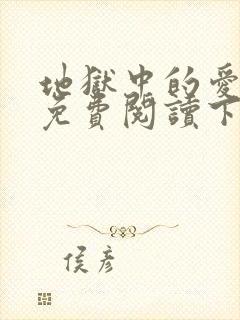 地獄中的愛
免費閱讀下
侯彥